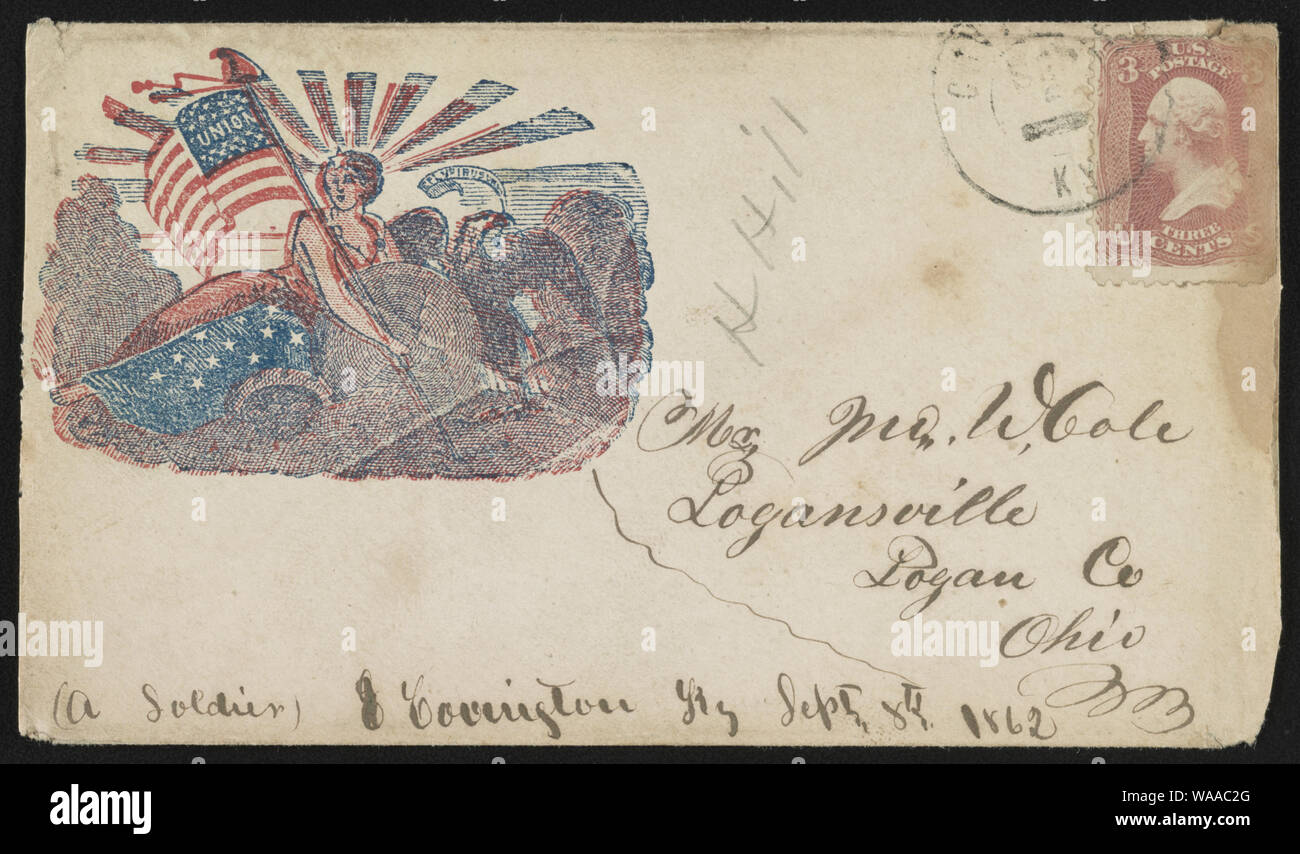 UNION
H Hill
KY
U.S.
POSTAGE
3 3
THREE
3 CENTS
Mr Jno. W. Cole
Logansville
Logan Co
Ohio
(A Soldier) Covington Ky Sept 8th 1862
alamy
Image ID: WAAC2G
www.alamy.com